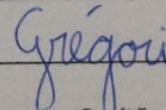 Grégori